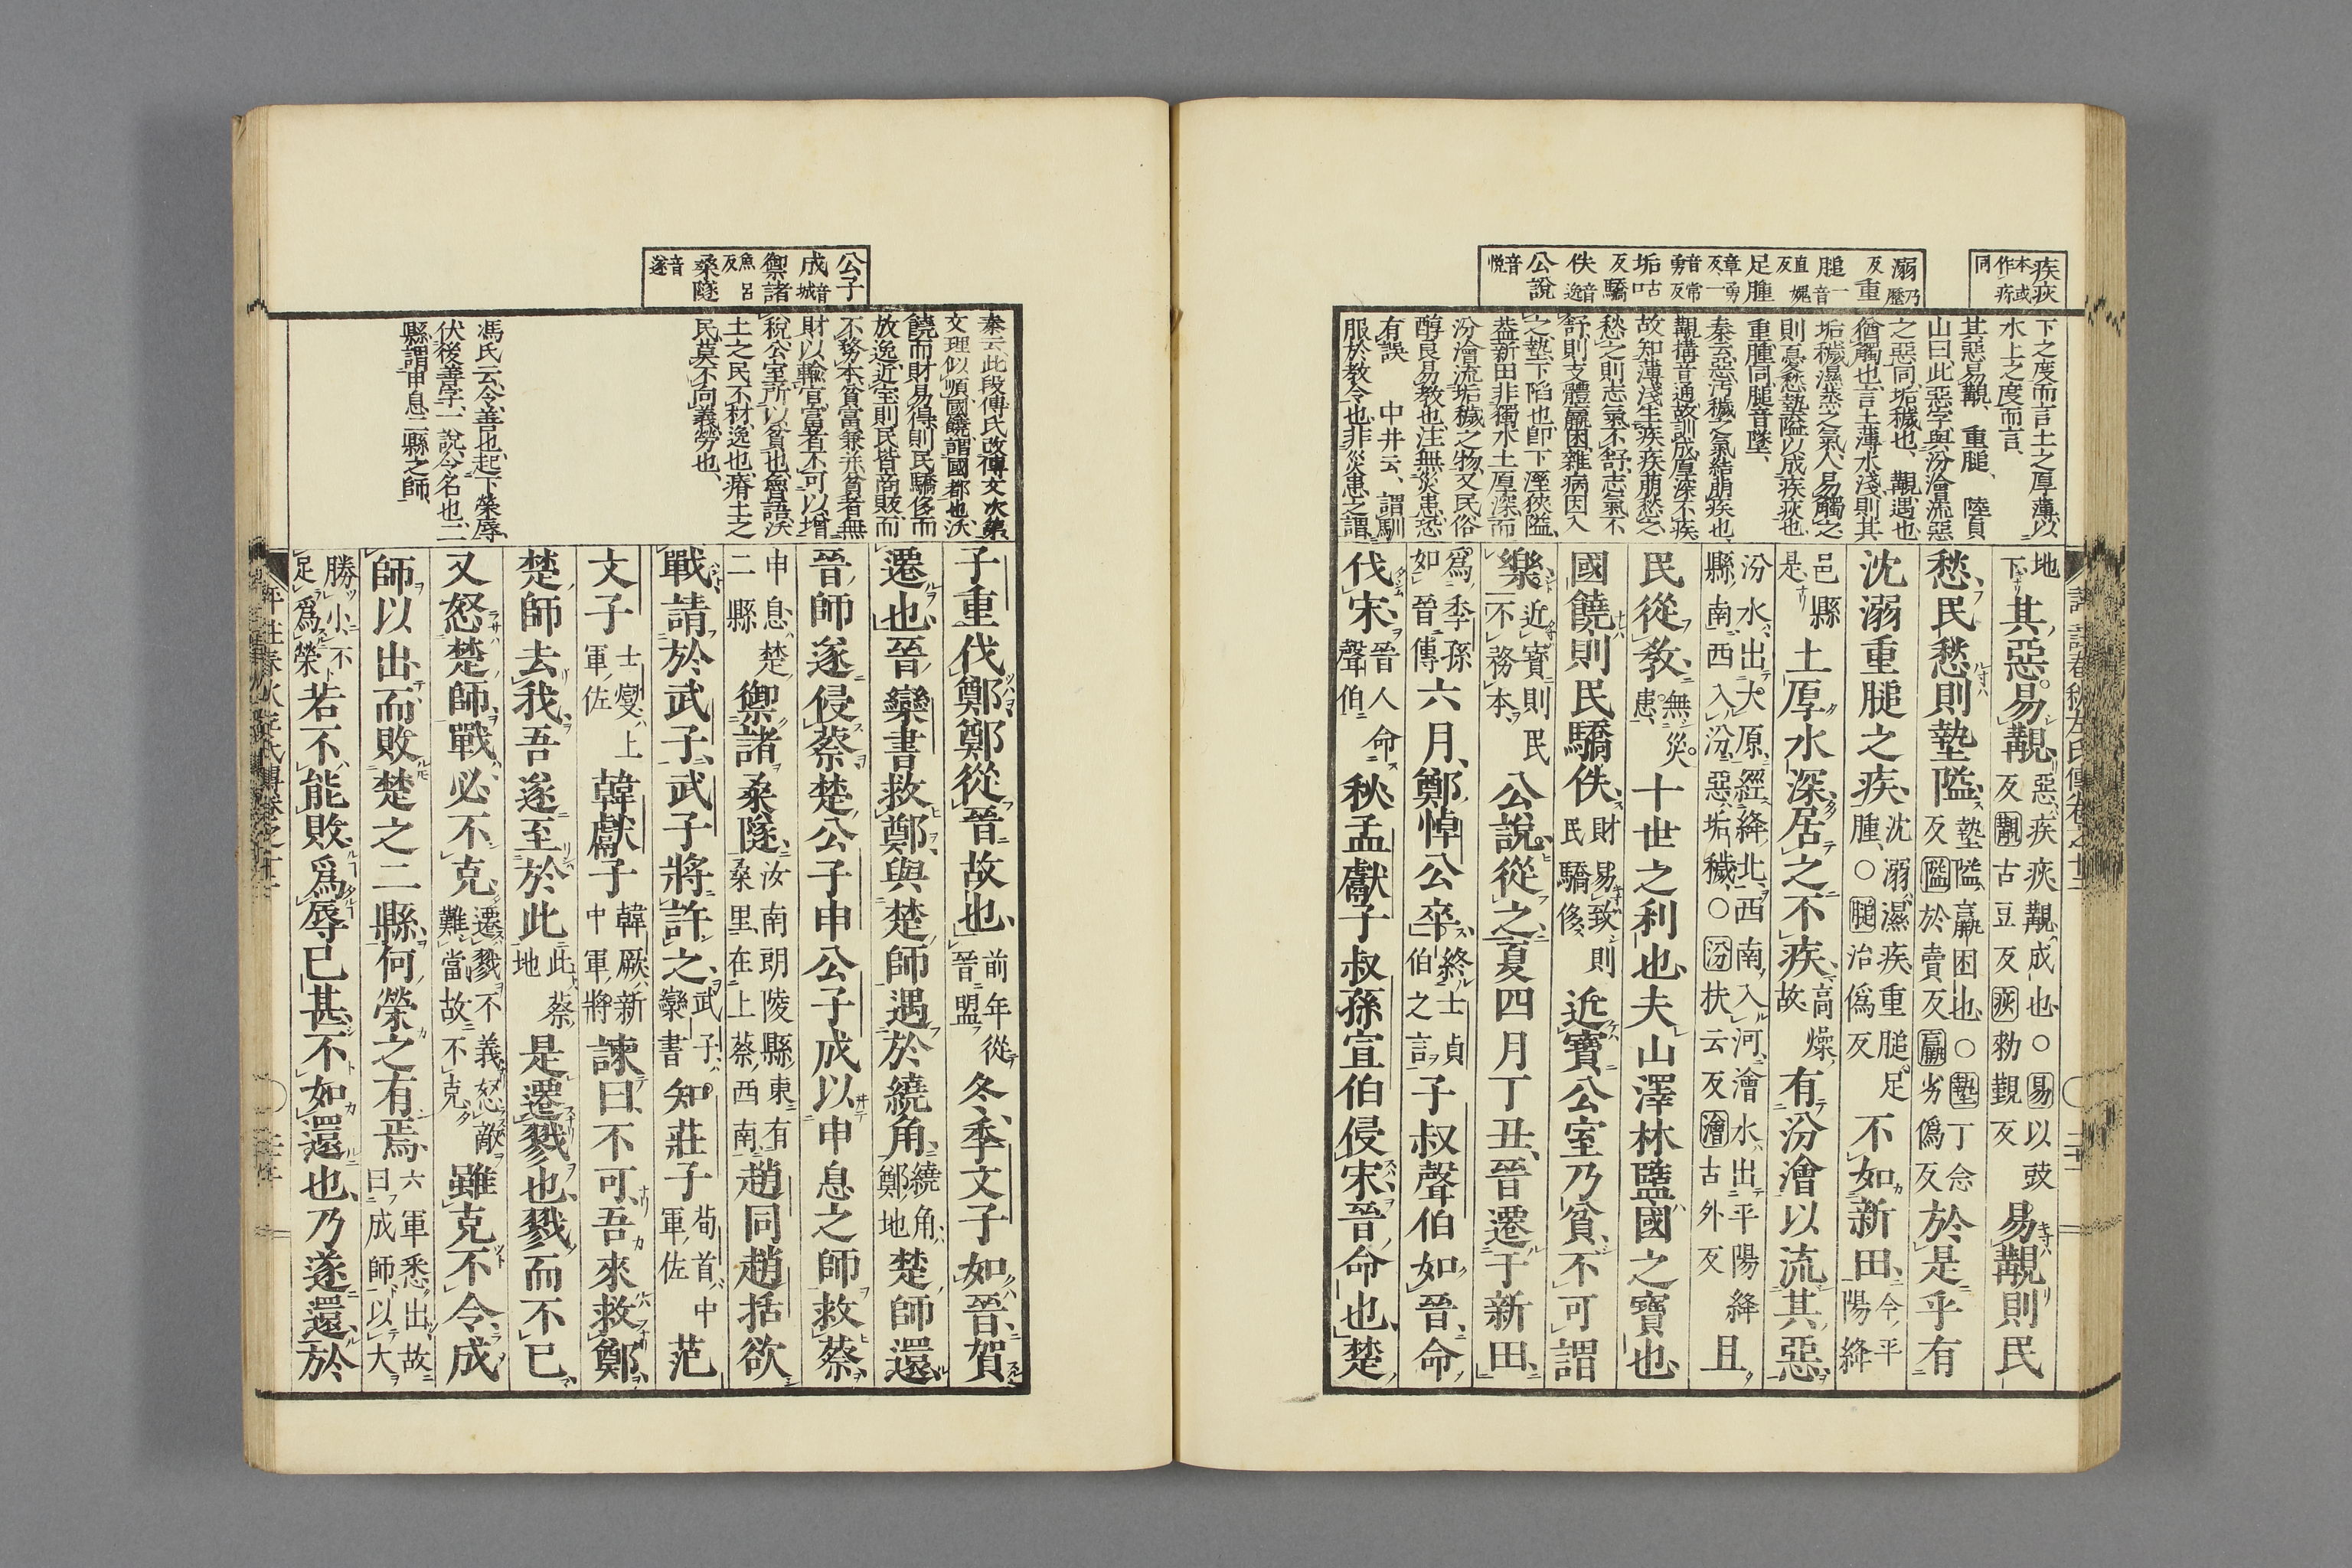 疾疢本或作疹同
溺乃歷反重膇一音直媿反足腫章勇反一音常勇反垢古口反驕佚音逸公說音悅
下之度而言土之厚薄以
水上之度而言
其惡易覯重膇陸貞
山曰此惡字與汾澮流惡
之惡同垢穢也覯遇也
猶觸也言土薄水淺則其
垢穢濕蒸之氣人易觸之
則憂愁墊隘以成疾疢也
重腫同膇音墜
秦云惡汚穢之氣結崩疾也
覯構音通故訓成厚深不疾
故知薄淺生疾疾萠愁之
愁之則志氣不舒志氣不
舒則支體羸困雜病因入
之墊下陷也卽下溼狹隘
蓋新田非獨水土厚深而
汾澮流垢穢之物又民俗
醇良易敎也注無災患恐
有誤 中井云謂馴
服於敎令也非災患之謂
地下其惡易覯惡疾疢覯成也○易以豉反覯古豆反疢勑覲反易覯則民
愁民愁則墊隘墊隘羸困也○墊丁念反隘於賣反羸劣僞反於是乎有
沈溺重膇之疾沈溺濕疾重膇足腫○膇治僞反不如新田今平陽絳
邑縣是土厚水深居之不疾高燥故有汾澮以流其惡
汾水出大原經絳北西南入河澮水出平陽絳縣南西入汾惡垢穢○汾扶云反澮古外反且
民從敎無災患十世之利也夫山澤林盬國之寶也
國饒則民驕佚財易致則民驕侈近寶公室乃貧不可謂
樂近寶則民不務本公說從之夏四月丁丑晉遷于新田
爲季孫如晉傳六月鄭悼公卒終士貞伯之言子叔聲伯如晉命
伐宋晉人命聲伯秋孟獻子叔孫宣伯侵宋晉命也楚
公子成音城禦諸魚呂反桑隧音遂
秦云此段傅氏改傳文次第
文理似順國饒謂國都也沃
饒而財易得則民驕侈而
放逸近宝則民皆商販而
不務本貧富兼并貧者無
財以輸官富者不可以增
稅公室所以貧也魯語沃
土之民不材逸也瘠土之
民莫不向義勞也
馮氏云令善也起下榮辱
伏後善字一說令名也二
縣謂申息二縣之師
子重伐鄭鄭從晉故也前年從晉盟冬季文子如晉賀
遷也晉欒書救鄭與楚師遇於繞角繞角鄭地楚師還
晉師遂侵蔡楚公子申公子成以申息之師救蔡
申息楚二縣禦諸桑隧汝南朗陵縣東有桑里在上蔡西南趙同趙括欲
戰請於武子武子將許之武子欒書知莊子荀首中軍佐范
文子士燮上軍佐韓獻子韓厥新中軍將諫曰不可吾來救鄭
楚師去我吾遂至於此此蔡地是遷戮也戮而不已
又怒楚師戰必不克遷戮不義怒敵難當故不克雖克不令成
師以出而敗楚之二縣何榮之有焉六軍悉出故曰成師以大
勝小不足爲榮若不能敗爲辱已甚不如還也乃遂還於